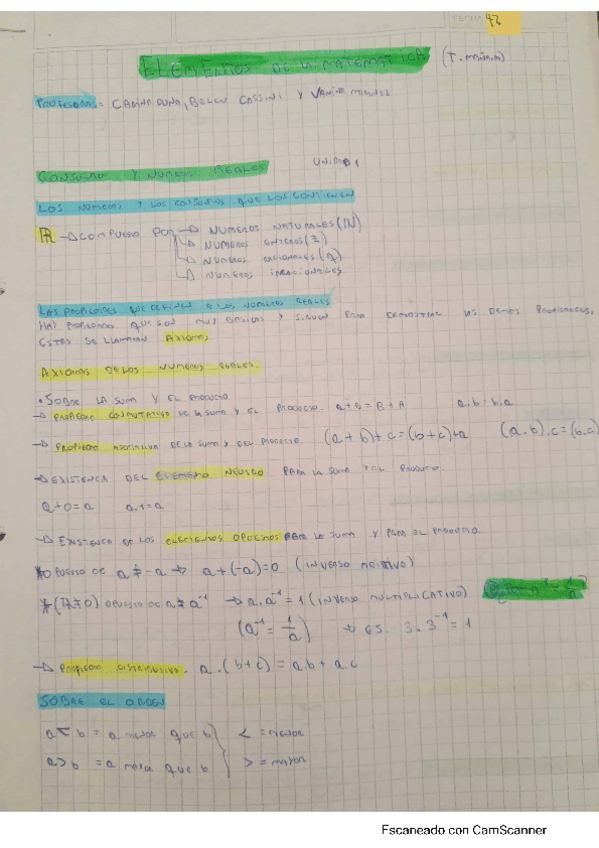 FECHA 42
ELEMENTOS DE LA MATEMATICA (T. MAÑANA)
PROFESORA:
CONJUNTO Y NUMEROS REALES UNIDAD 1
LOS NUMEROS Y LOS CONJUNTOS QUE LOS CONTIENEN
R → COMPUESTO POR → NUMEROS NATURALES (N)
NUMEROS ENTEROS (Z)
NUMEROS RACIONALES (Q)
NUMEROS IRRACIONALES
LAS PROPIEDADES QUE DEFINEN A LOS NUMEROS REALES
HAY PROPIEDADES QUE SON MUY BASICAS Y SIRVEN PARA DEMOSTRAR LAS DEMAS PROPIEDADES.
ESTAS SE LLAMAN AXIOMAS
AXIOMAS DE LOS NUMEROS REALES.
• SOBRE LA SUMA Y EL PRODUCTO
→ PROPIEDAD CONMUTATIVA DE LA SUMA Y EL PRODUCTO. a+B=B+A a.b=b.a
→ PROPIEDAD ASOCIATIVA DE LA SUMA Y DEL PRODUCTO (a+b)+c=(b+c)+a (a.b).c=(b.c)
→ EXISTENCIA DEL ELEMENTO NEUTRO PARA LA SUMA Y EL PRODUCTO.
a+0=a a.1=a
→ EXISTENCIA DE LOS ELEMENTOS OPUESTOS PARA LA SUMA Y PARA EL PRODUCTO
* OPUESTO DE a = -a → a+(-a)=0 (INVERSO ADITIVO)
* (a≠0) OPUESTO DE a = a⁻¹ → a.a⁻¹=1 (INVERSO MULTIPLICATIVO)
(a⁻¹ = 1/a) → EJ. 3.3⁻¹=1
→ PROPIEDAD DISTRIBUTIVA. a.(b+c)=a.b+a.c
SOBRE EL ORDEN
a<b = a MENOR QUE b < = MENOR
a>b = a MAYOR QUE b > = MAYOR
Escaneado con CamScanner